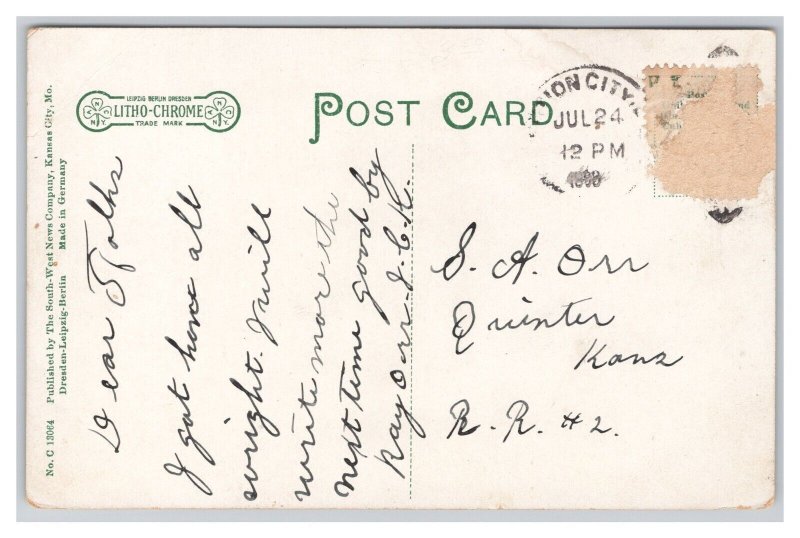 No. C 13064 Published by The South-West News Company, Kansas City, Mo.
Dresden-Leipzig-Berlin Made in Germany
LEIPZIG BERLIN DRESDEN
LITHO-CHROME
TRADE MARK
POST CARD
ION CITY
JUL 24
12 PM
Dear Folks
I got home all
wright. I will
write more the
next time good by
Ray Orr. J. C. K.
S. A. Orr
Quinter
Kanz
R. R. #2.